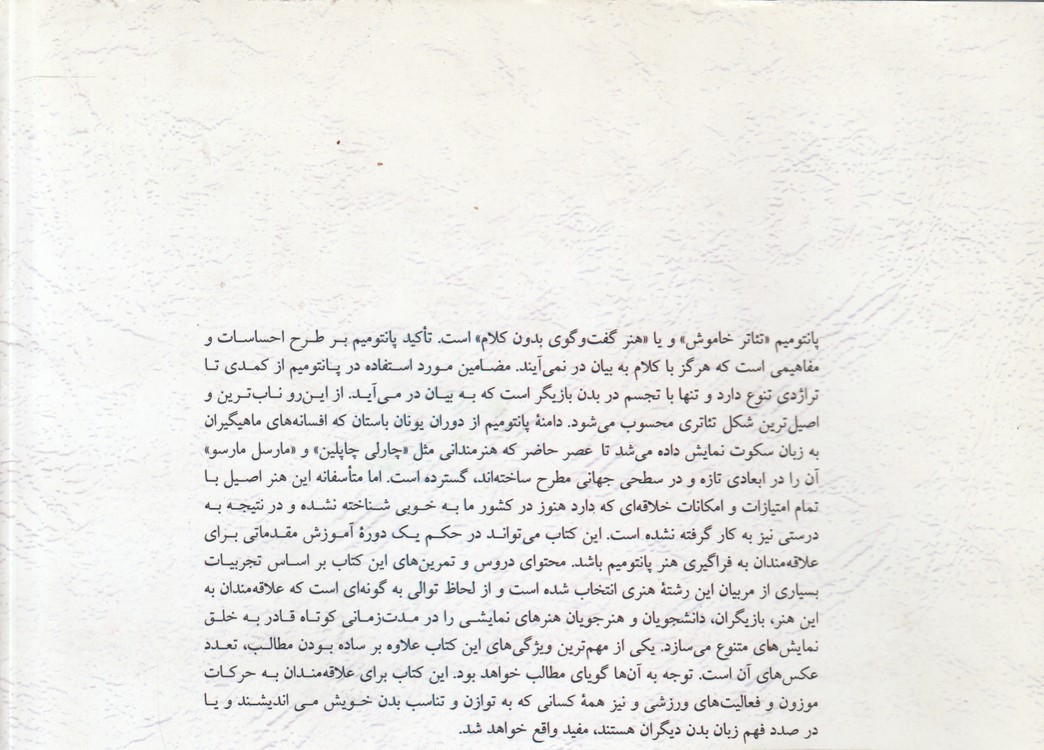 پانتومیم «تئاتر خاموش» و یا «هنر گفت‌وگوی بدون کلام» است. تأکید پانتومیم بر طرح احساسات و
مفاهیمی است که هرگز با کلام به بیان در نمی‌آیند. مضامین مورد استفاده در پانتومیم از کمدی تا
تراژدی تنوع دارد و تنها با تجسم در بدن بازیگر است که به بیان در می‌آید. از این‌رو ناب‌ترین و
اصیل‌ترین شکل تئاتری محسوب می‌شود. دامنهٔ پانتومیم از دوران یونان باستان که افسانه‌های ماهیگیران
به زبان سکوت نمایش داده می‌شد تا عصر حاضر که هنرمندانی مثل «چارلی چاپلین» و «مارسل مارسو»
آن را در ابعادی تازه و در سطحی جهانی مطرح ساخته‌اند، گسترده است. اما متأسفانه این هنر اصیل با
تمام امتیازات و امکانات خلاقه‌ای که دارد هنوز در کشور ما به خوبی شناخته نشده و در نتیجه به
درستی نیز به کار گرفته نشده است. این کتاب می‌تواند در حکم یک دورهٔ آموزش مقدماتی برای
علاقه‌مندان به فراگیری هنر پانتومیم باشد. محتوای دروس و تمرین‌های این کتاب بر اساس تجربیات
بسیاری از مربیان این رشتهٔ هنری انتخاب شده است و از لحاظ توالی به گونه‌ای است که علاقه‌مندان به
این هنر، بازیگران، دانشجویان و هنرجویان هنرهای نمایشی را در مدت‌زمانی کوتاه قادر به خلق
نمایش‌های متنوع می‌سازد. یکی از مهم‌ترین ویژگی‌های این کتاب علاوه بر ساده بودن مطالب، تعدد
عکس‌های آن است. توجه به آن‌ها گویای مطالب خواهد بود. این کتاب برای علاقه‌مندان به حرکات
موزون و فعالیت‌های ورزشی و نیز همهٔ کسانی که به توازن و تناسب بدن خویش می اندیشند و یا
در صدد فهم زبان بدن دیگران هستند، مفید واقع خواهد شد.